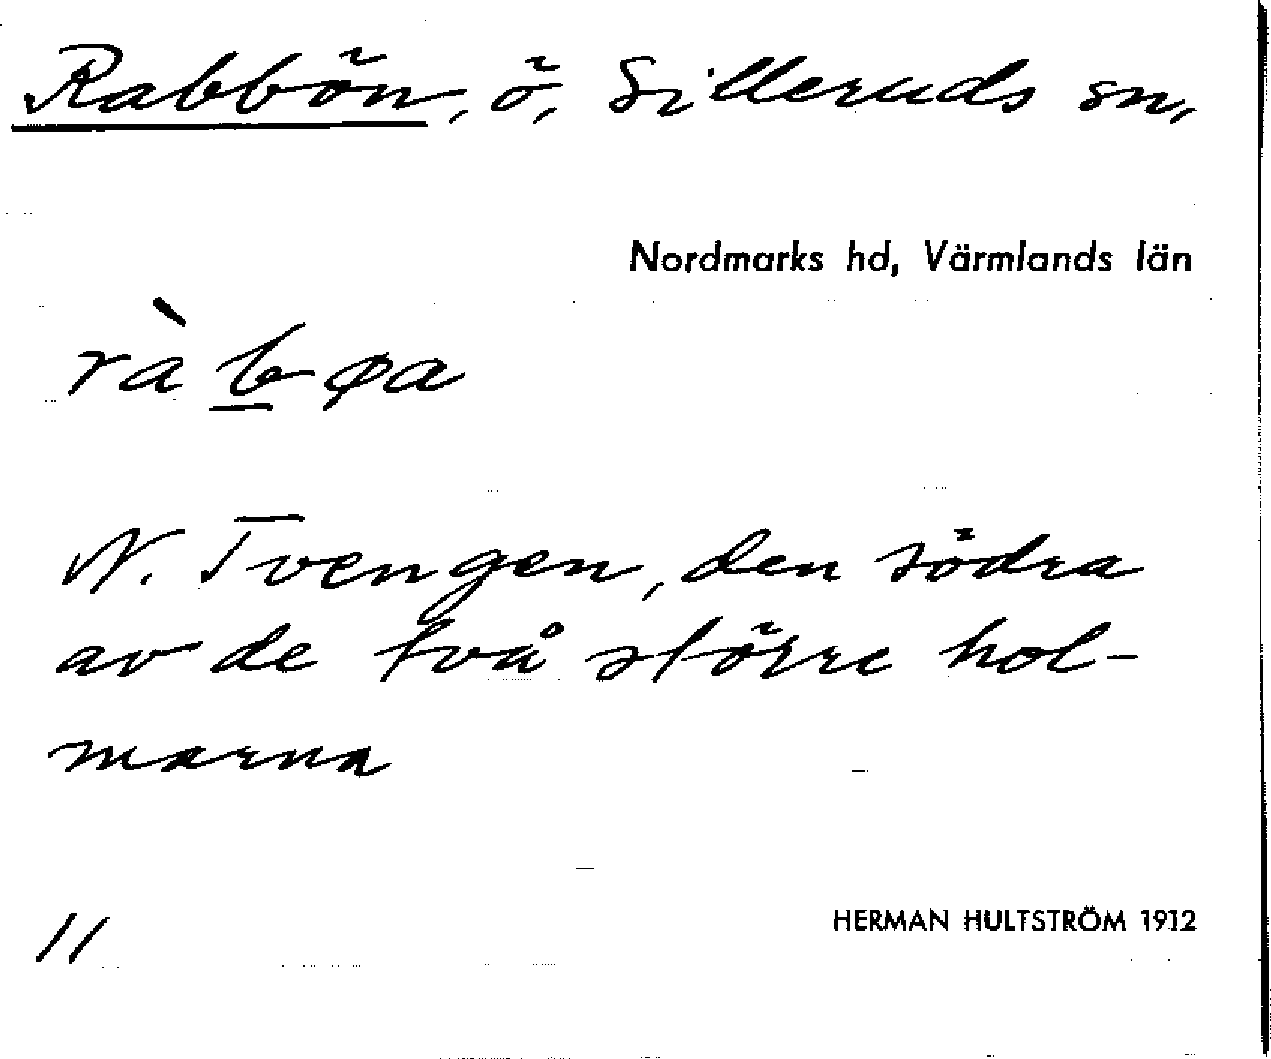 Rabbön, ö, Silleruds sn,
Nordmarks hd, Värmlands län
ràb̲øa
N. Tvengen, den södra
av de två större hol-
marna
11
HERMAN HULTSTRÖM 1912